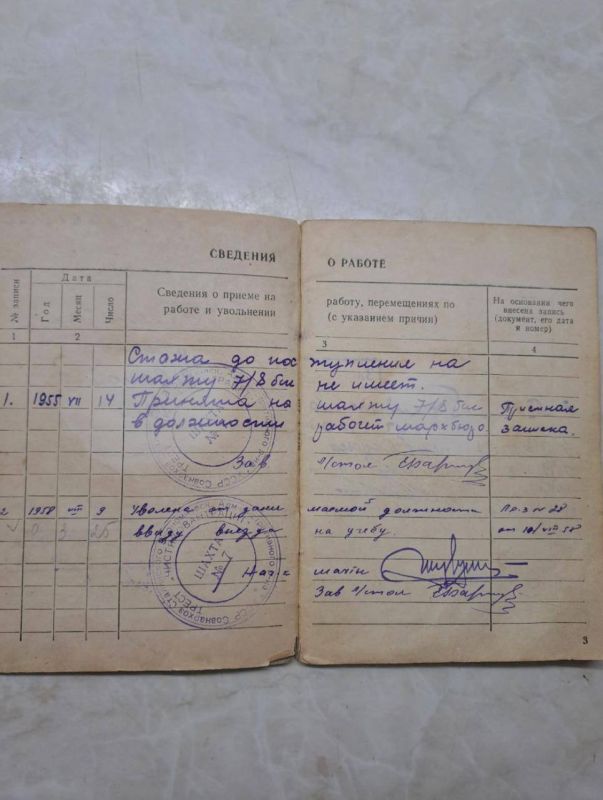 СВЕДЕНИЯ О РАБОТЕ
№ записи
Дата
Год
Месяц
Число
Сведения о приеме на работу, перемещениях по
работе и увольнении (с указанием причин)
На основании чего
внесена запись
(документ, его дата
и номер)
1 2 3 4
Стажа до поступления на
шахту 7/8 бис не имеет.
1. 1955 VII 14 Принята на шахту 7/8 бис Приемная
в должности работ. мархбюро. записка.
Зав. с/стол
2 1958 VIII 9 Уволена от занимаемой должности Пр-з № 28
0 3 26 ввиду выезда на учебу. от 10/VIII 58
Нач-к шахты
Зав с/стол
ШАХТА
№ 7
ТРЕСТ
3